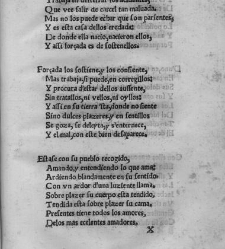 Que ver salir de cruel tan
Mas no los puede echar que son parientes,
Y es esta casa dellos eredada:
De donde ella nacio, nacieron ellos,
Y assi forçada es de sostenellos.
Forçada los sostiene, y los consiente,
Mas trabaja, si puede, en corregillos:
Y procura d'estar dellos ausente,
Sin tratallos, ni vellos, ni oyllos:
Y assi con su tierra sta, donde no siente
Sino dulces plazeres, y en sentillos
Se goza, se deleyta, y s'enternece,
Y el mal, con este bien desparece.
Estase con su pueblo recogido,
Amando, y entendiendo lo que ama:
Ardiendo blandamente en su sentido
Con un ardor d'una luziente llama,
Sobre plazer su cuerpo esta tendido,
Tendida esta sobre plazer su cama,
Presentes tiene todos los amores,
Delos mas excelentes amadores.
X